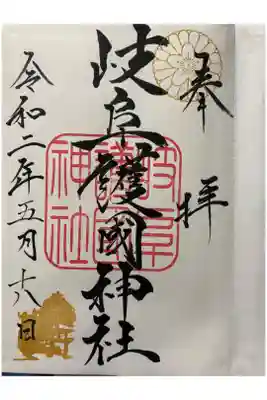 奉拝
岐阜護國神社
岐阜護國神社
令和二年五月十八日